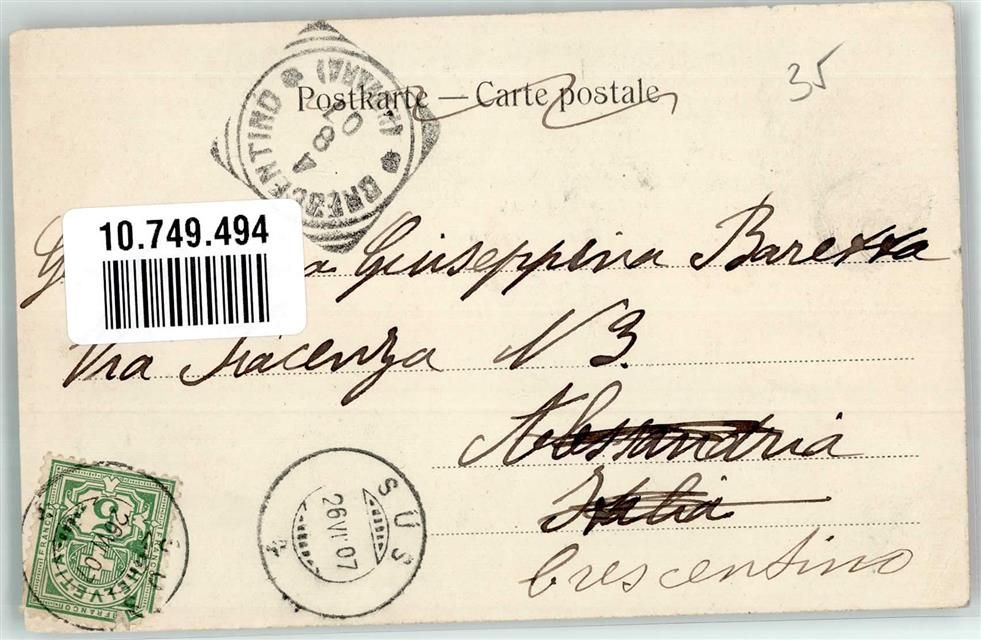 35
Postkarte — Carte postale
CRESCENTINO
8 07
10.749.494
Giuseppina Baretta
Via Piacenza N 3.
Alessandria
Italia
Crescentino
SUS
26 VI 07
5
FRANCO
HELVETIA
26 VI 07